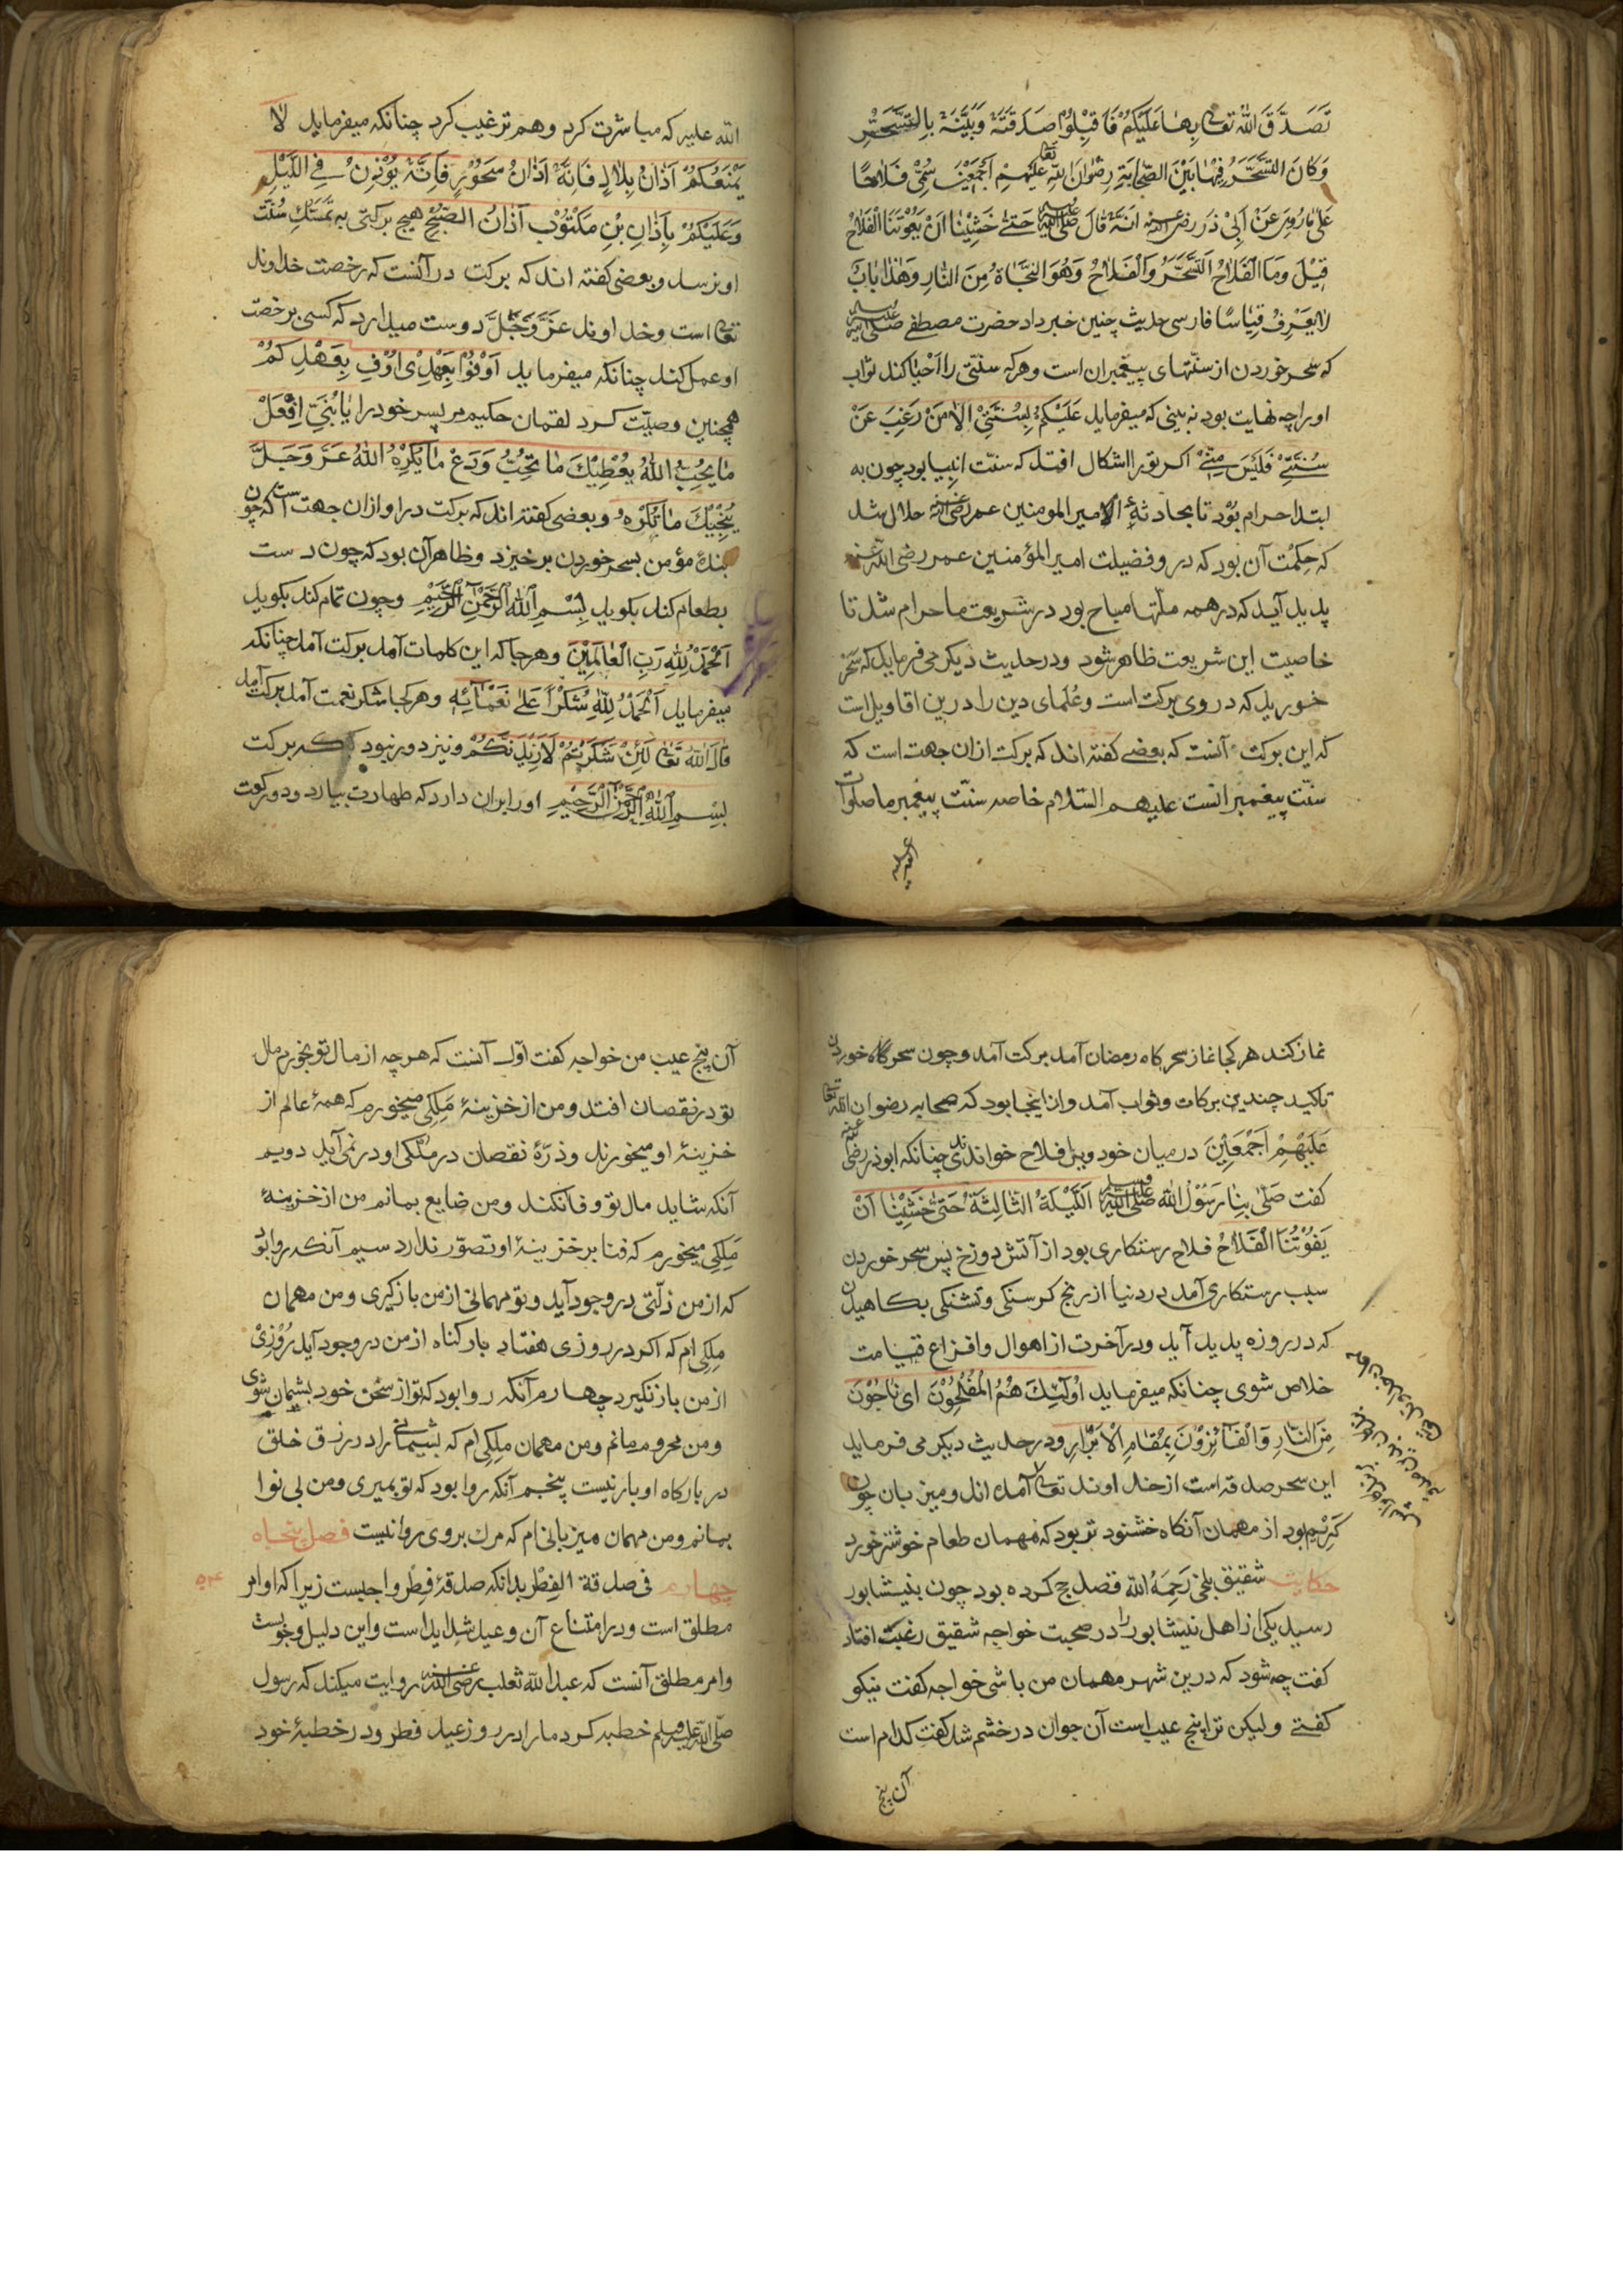 تَصَدَّقَ اللّٰه تعالی بِهَا عَلَیْکُمْ فَاقْبِلُوْا صَدَقَتَهٗ وَبَیَّنَهٗ بِالتَّسَحُّرِ
وَکَانَ التَّسَحُّرُ فِیْهَا بَیْنَ الصَّحَابَةِ رِضْوَانَ اللّٰهِ تعالی عَلَیْهِمْ اَجْمَعِیْنَ سُمِّیَ فَلَاحًا
عَلیٰ مَا رُوِیَ عَنْ اَبِیْ ذَر رضی الله عنه اَنَّهٗ قَالَ صلی الله علیه حَتّٰی خَشِیْنَا اَنْ یَفُوْتَنَا الْفَلَاحُ
قِیْلَ وَمَا الْفَلَاحُ التَّسَحُّرُ وَالْفَلَاحُ وَهُوَ النَّجَاةُ مِنَ النَّارِ وَهٰذَا بَابٌ
لَا یُعْرَفُ قِیَاسًا فارسی حدیث چنین خبر داد حضرت مصطفی صلی الله علیه
که سحر خوردن از سنّتهای پیغمبران است وهرکه سنّتی را اَحْیَا کند ثواب
اورا چه نهایت بود نه بینی که میفرماید عَلَیْکُمْ بِسُنَّتِیْ اَلَا مَنْ رَغِبَ عَنْ
سُنَّتِیْ فَلَیْسَ مِنِّیْ اکر تورا اشکال افتد که سنّت انبیا بود چون به
ابتدا حرام بُوْد تا بحادثهٔ امیر المومنین عمر رضی الله عنه حلال شد
که حِکْمَت آن بود که در و فضیلت امیر المؤمنین عمر رضی الله عنه
پدید آید که در همه ملّتها مباح بود در شریعت ما حرام شد تا
خاصیت این شریعت ظاهر شود ودر حدیث دیکر می فرماید که سَحَر
خورید که در وی برکت است وعُلمای دین را درین اقاویل است
که این برکت آنست که بعضے کفته اند که برکت ازان جهت است که
سنّت پیغمبرانست علیهم السّلام خاصه سنّت پیغمبر ما صلوات
الله علیه
الله علیه که مباشرت کرد وهم ترغیب کرد چنانکه میفرماید لَا
یَمْنَعُکُمْ اَذَانُ بِلَالٍ فَاِنَّهٗ اَذَانُ سَحُوْرٍ فَاِنَّهٗ یُؤَذِّنُ فِی اللَّیْلِ
وَعَلَیْکُمْ بِاَذَانِ بْنِ مَکْتُوْبٍ آذَانُ الصُّبْحِ هیچ برکتی به تَمَسُّکِ سُنّت
او نرسد و بعضی کفته اند که برکت در آنست که رخصت خداوند
تعالی است وخداوند عَزَّ وَجَلَّ دوست میدارد که کسی برخصت
او عمل کند چنانکه میفرماید اَوْفُوْا بِعَهْدِیْ اُوْفِ بِعَهْدِکُمْ
همچنین وصیّت کرد لقمان حکیم مر پسر خود را یَا بُنَیَّ اِفْعَلْ
مَا یُحِبُّ اللّٰهُ یُعْطِیْکَ مَا تُحِبُّ وَدَعْ مَا یَکْرَهُ اللّٰهُ عَزَّ وَجَلَّ
یُنْجِیْکَ مَا تَکْرَهُ و بعضی کفته اند که برکت در او ازان جهت است که چون
بندهٔ مؤمن بسحر خوردن برخیزد وظاهر آن بود که چون دست
بطعام کند بکوید بِسْمِ اللّٰهِ الرَّحْمٰنِ الرَّحِیْمِ وچون تمام کند بکوید
اَلْحَمْدُ لِلّٰهِ رَبِّ الْعَالَمِیْنَ وهر جا که این کلمات آمد برکت آمد چنانکه
میفرماید اَلْحَمْدُ لِلّٰهِ شُکْرًا عَلیٰ نَعْمَآئِهٖ وهر کجا شکر نعمت آمد برکت آمد
قال الله تعالی لَئِنْ شَکَرْتُمْ لَاَزِیْدَنَّکُمْ ونیز دور نبود که برکت
بِسْمِ اللّٰهِ الرَّحْمٰنِ الرَّحِیْمِ اورا بران دارد که طهارت بیارد ودو رکعت
نماز کند هر کجا نماز سحرکاه رمضان آمد برکت آمد وچون سحرکاه خوردن
تاکید چندین برکات وثواب آمد واز اینجا بود که صحابه رضوان الله تعالی
عَلَیْهِمْ اَجْمَعِیْنَ در میان خود ویرا فلاح خواندندی چنانکه ابوذر رضی عنه
کفت صَلّیٰ بِنَا رَسُوْلُ الله صلی الله علیه وسلم اللَّیْلَةَ الثَّالِثَةَ حَتّٰی خَشِیْنَا اَنْ
یَفُوْتُنَا الْفَلَاحُ فلاح رستکاری بود از آتش دوزخ پس سحر خوردن
سبب رستکاری آمد در دنیا از رنج کرسنکی وتشنکی بکاهیدن
که در روزه پدید آید ودر آخرت از اهوال وافزاع قیامت
خلاص شوی چنانکه میفرماید اُولٰئِکَ هُمُ الْمُفْلِحُوْنَ ای نَاجُوْنَ
مِنَ النَّارِ وَالْفَآئِزُوْنَ بِمَقَامِ الْاَبْرَارِ ودر حدیث دیکر می فرماید
این سحر صدقه است از خداوند تعالی آمده اند ومیزبان چون
کَرِیْم بود از مهمان آنکاه خشنود تر بود که مهمان طعام خوشتر خورد
حکایت شقیق بلخی رَحِمَهُ الله قصد حج کرده بود چون بنیشابور
رسید یکی از اهل نیشابور را در صحبت خواجه شقیق رغبت افتاد
کفت چه شود که درین شهر مهمان من باشی خواجه کفت نیکو
کفتے ولیکن ترا پنج عیب است آن جوان در خشم شد کفت کدام است
آن پنج
آن پنج عیب من خواجه کفت اوّل آنست که هرچه از مال تو بخورم مال
تو در نقصان افتد ومن از خزینهٔ مَلِکی میخورم که همهٔ عالم از
خزینهٔ او میخورند وذرّهٔ نقصان در مُلکی او در نمی آید دویم
آنکه شاید مال تو وفا نکند ومن ضایع بمانم من از خزینهٔ
مَلِکی میخورم که فنا بر خزینهٔ او تصوّر ندارد سیم آنکه روا بود
که از من زلّتی در وجود آید وتو مهمانی از من بازکیری ومن مهمان
ملِکی ام که اکر در روزی هفتاد بار کناه از من در وجود آید رُوْزِیْ
از من بازنکیرد چهارم آنکه روا بود که تو از سخن خود پشیمان شوی
ومن محروم مانم ومن مهمان ملِکی ام که پشیمانی را در رزق خلق
در بارکاه او بار نیست پنجم آنکه روا بود که تو بمیری ومن بی نوا
بمانم ومن مهمان میزبانی ام که مرک بر وی روا نیست فصل پنجاه
چهارم فی صدقة الفِطْر بدانکه صدقهٔ فِطْر واجبست زیرا که اوامر
۵۴
مطلق است ودر امتناع آن وعید شدید است واین دلیل وجوبست
وامر مطلق آنست که عبدالله ثعلب رضی الله عنه روایت میکند که رسول
صلّی الله علیه وسلم خطبه کرد مارا در روز عید فطر ودر خطبهٔ خود